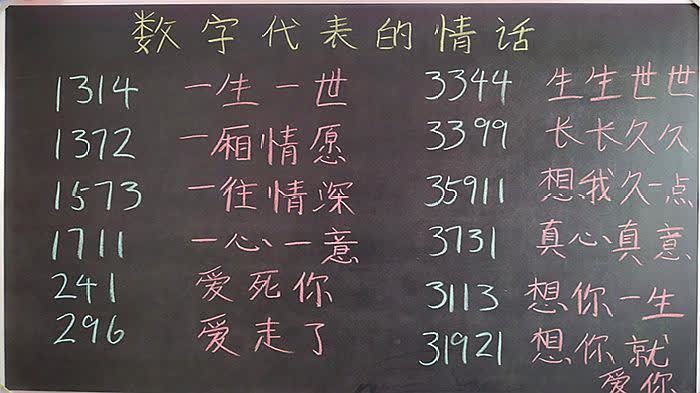 数字代表的情话
1314 一生一世
1372 一厢情愿
1573 一往情深
1711 一心一意
241 爱死你
296 爱走了
3344 生生世世
3399 长长久久
35911 想我久一点
3731 真心真意
3113 想你一生
31921 想你就
爱你